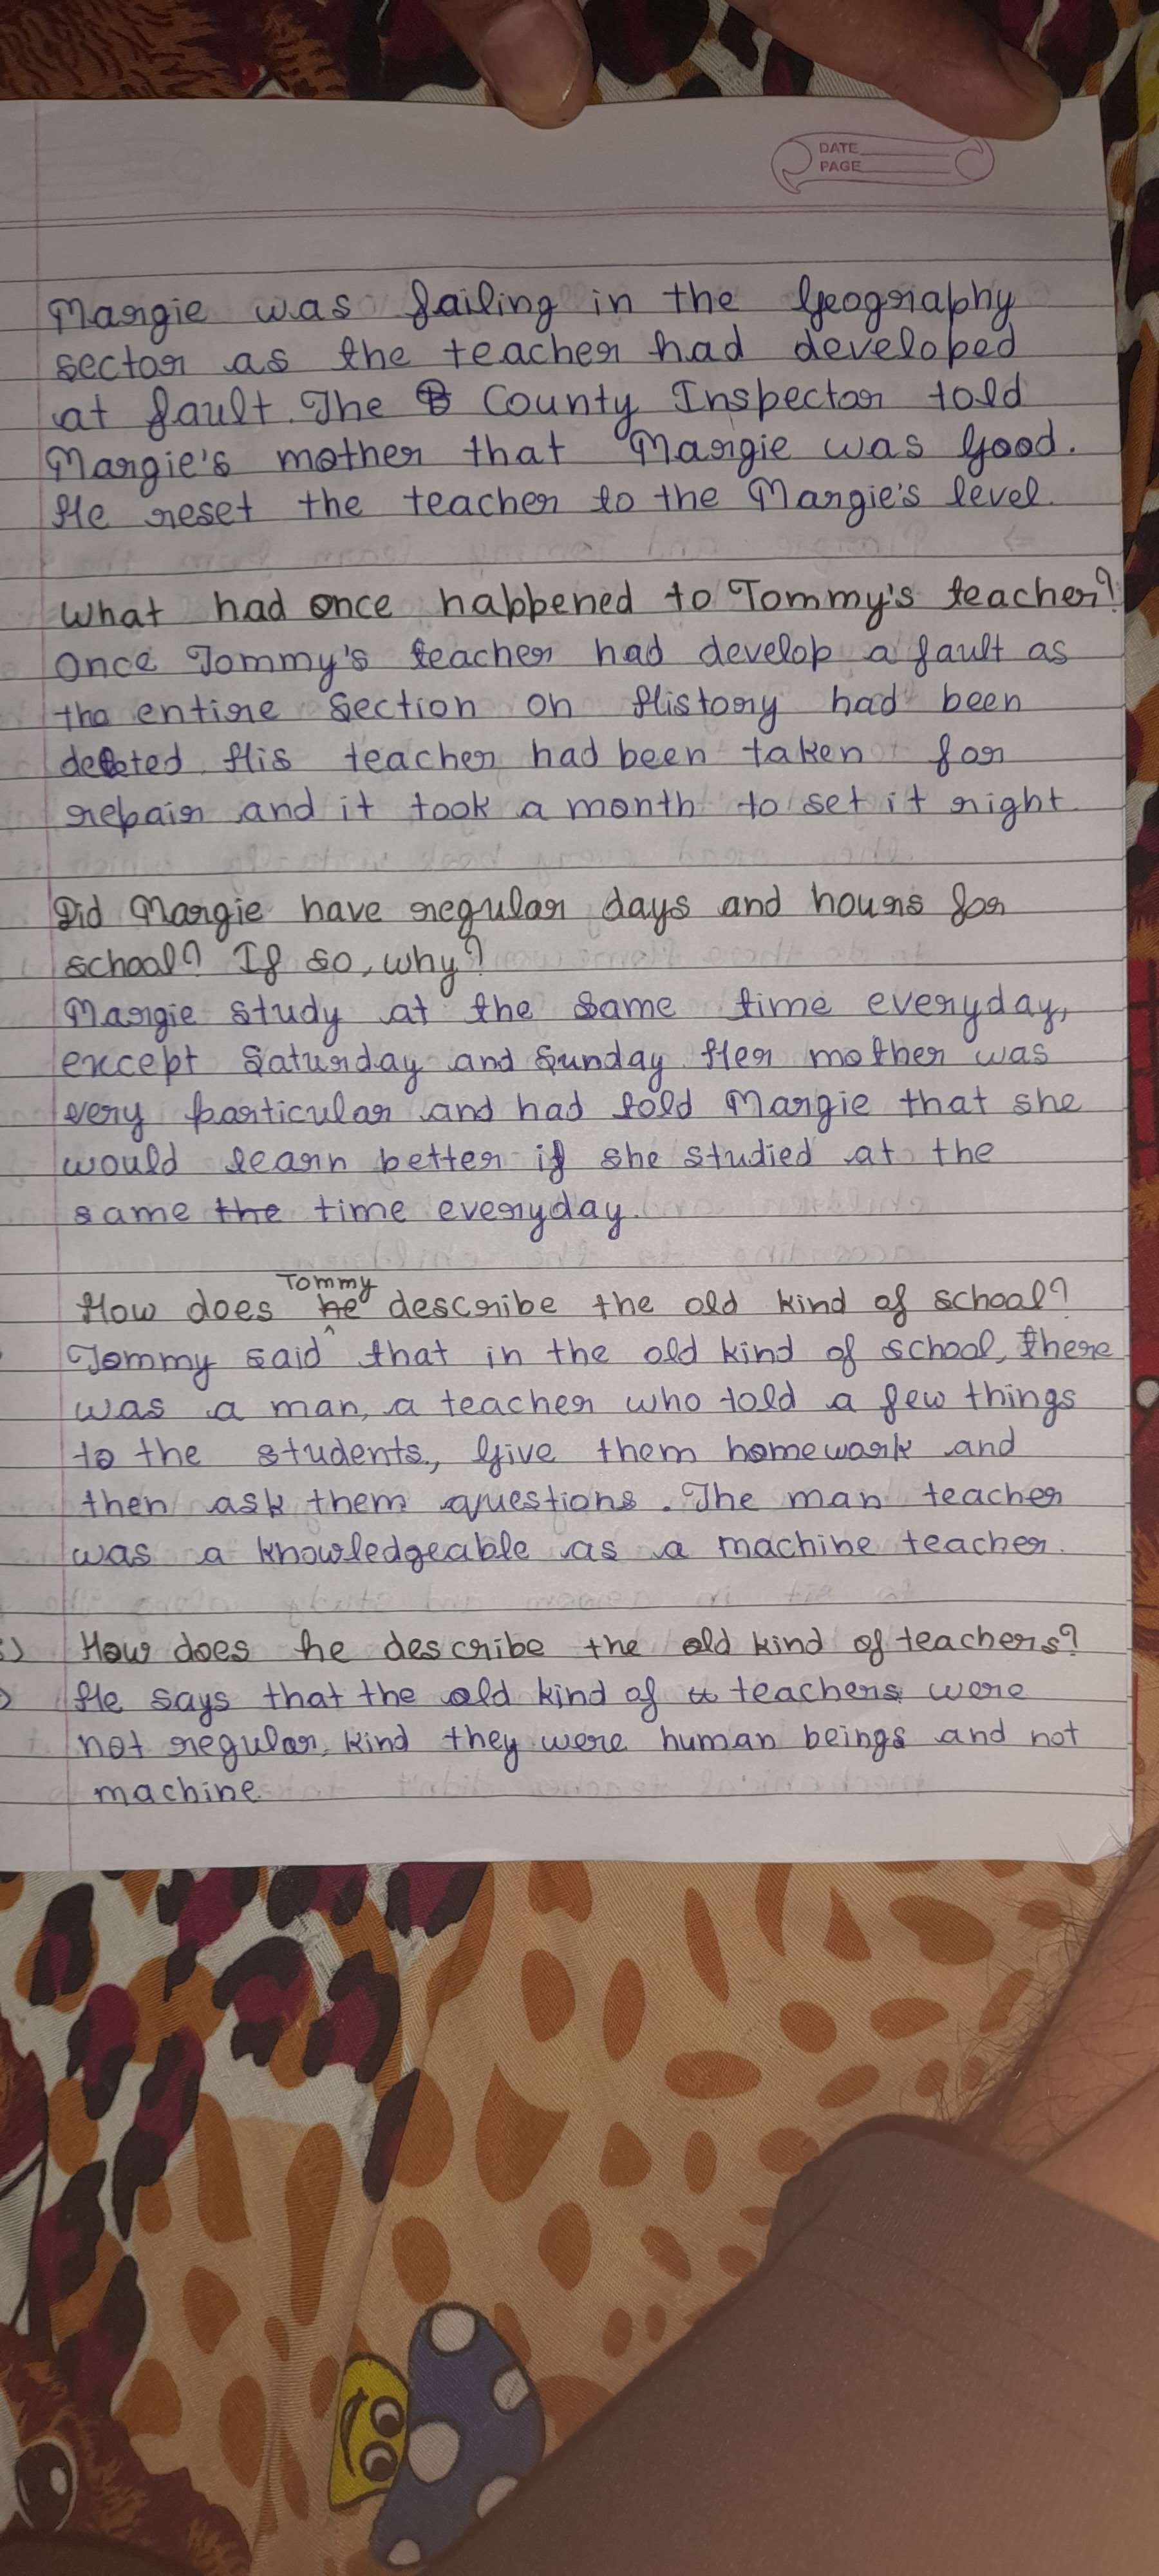 DATE
PAGE
Margie was failing in the Geography
sector as the teacher had developed
at fault. The County Inspector told
Margie's mother that Margie was Good.
He reset the teacher to the Margie's level.
What had once happened to Tommy's teacher?
Once Tommy's teacher had develop a fault as
the entire section on History had been
deleted. His teacher had been taken for
repair and it took a month to set it right.
Did Margie have regular days and hours for
school? If so, why?
Margie study at the same time everyday,
except Saturday and Sunday. Her mother was
very particular and had told Margie that she
would learn better if she studied at the
same the time everyday.
Tommy
How does he describe the old kind of school?
Tommy said that in the old kind of school, there
was a man, a teacher who told a few things
to the students, Give them homework and
then ask them questions. The man teacher
was a knowledgeable as a machine teacher.
How does he describe the old kind of teachers?
He says that the old kind of teachers were
not regular, kind they were human beings and not
machine